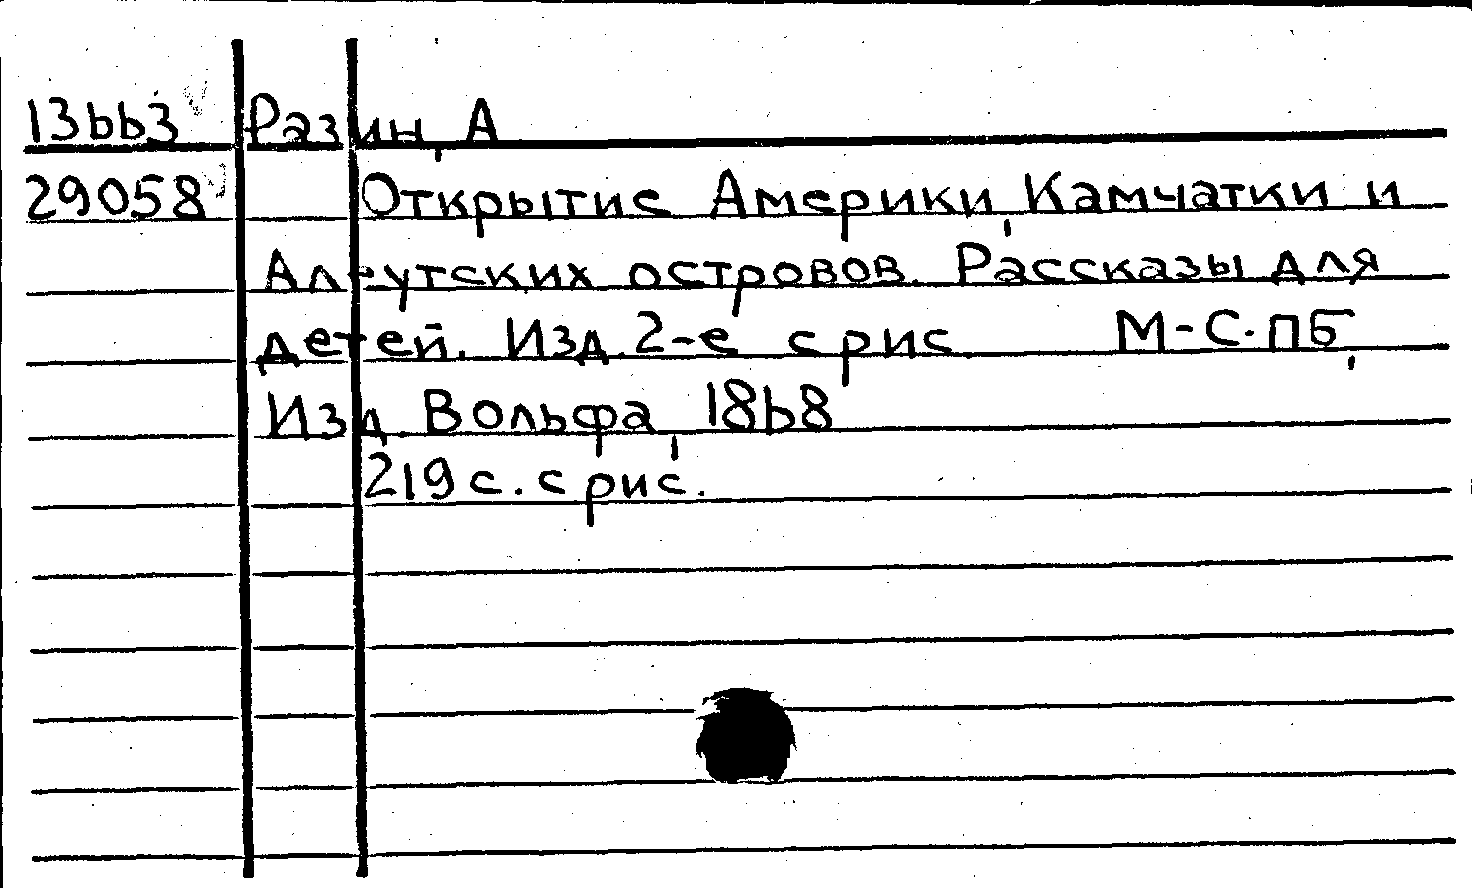 13663 Разин, А
29058 Открытие Америки, Камчатки и
Алеутских островов. Рассказы для
детей. Изд. 2-е с рис. М-С.ПБ,
Изд. Вольфа, 1868
219 с. с рис.